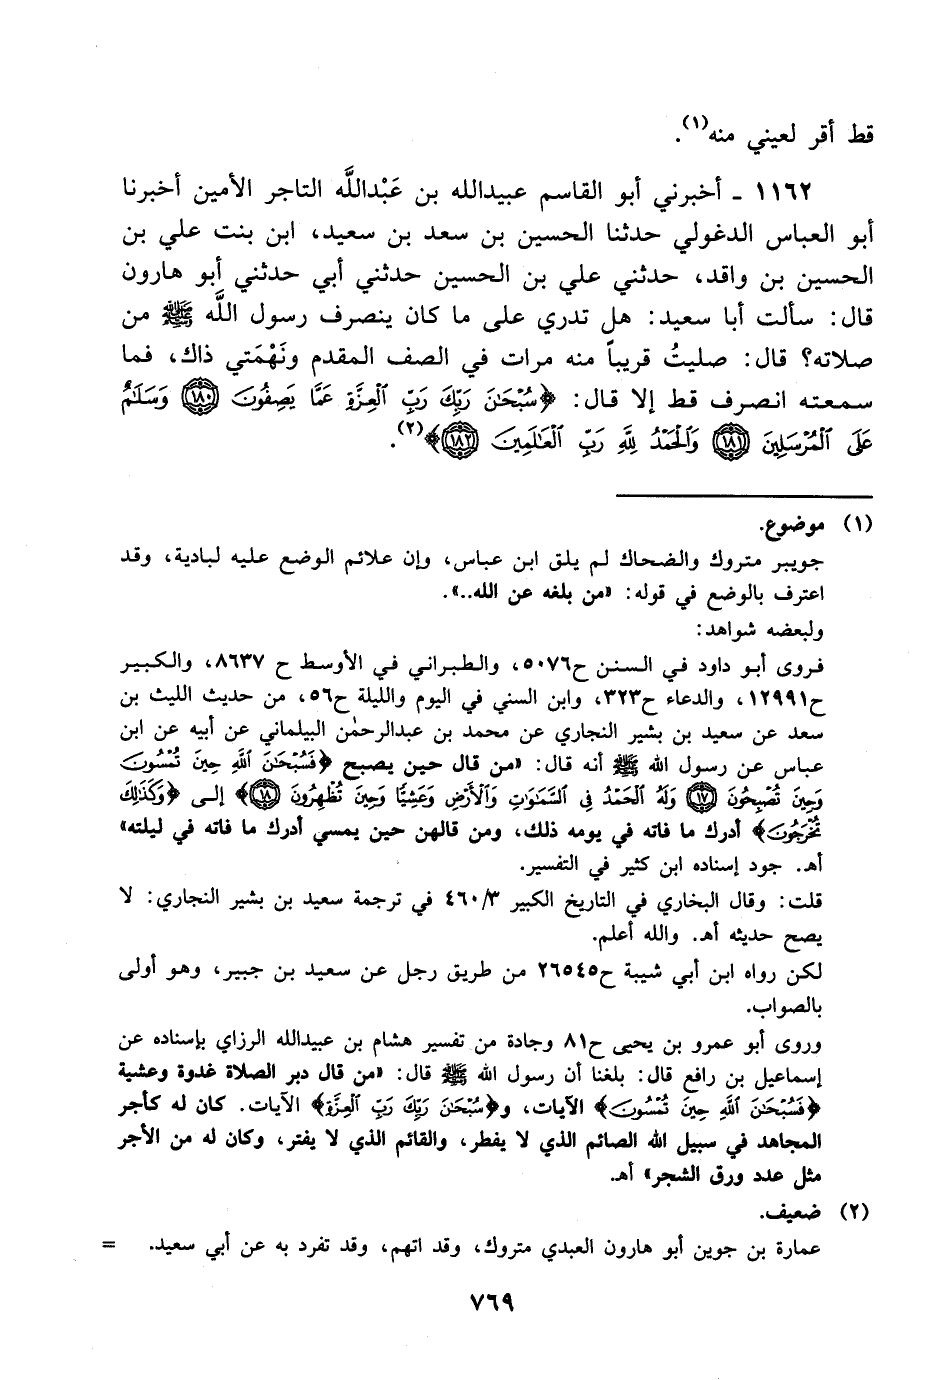 قط أقر لعيني منه(١).
١١٦٢ ـ أخبرني أبو القاسم عبيدالله بن عَبْداللَّه التاجر الأمين أخبرنا
أبو العباس الدغولي حدثنا الحسين بن سعد بن سعيد، ابن بنت علي بن
الحسين بن واقد، حدثني علي بن الحسين حدثني أبي حدثني أبو هارون
قال: سألت أبا سعيد: هل تدري على ما كان ينصرف رسول اللَّه ﷺ من
صلاته؟ قال: صليتُ قريباً منه مرات في الصف المقدم ونَهْمَتي ذاك، فما
سمعته انصرف قط إلا قال: ﴿سُبْحَٰنَ رَبِّكَ رَبِّ ٱلْعِزَّةِ عَمَّا يَصِفُونَ ١٨٠ وَسَلَٰمٌ
عَلَى ٱلْمُرْسَلِينَ ١٨١ وَٱلْحَمْدُ لِلَّهِ رَبِّ ٱلْعَٰلَمِينَ ١٨٢﴾(٢).
(١) موضوع.
جويبر متروك والضحاك لم يلق ابن عباس، وإن علائم الوضع عليه لبادية، وقد
اعترف بالوضع في قوله: «من بلغه عن الله..».
ولبعضه شواهد:
فروى أبو داود في السنن ح٥٠٧٦، والطبراني في الأوسط ح ٨٦٣٧، والكبير
ح١٢٩٩١، والدعاء ح٣٢٣، وابن السني في اليوم والليلة ح٥٦، من حديث الليث بن
سعد عن سعيد بن بشير النجاري عن محمد بن عبدالرحمٰن البيلماني عن أبيه عن ابن
عباس عن رسول الله ﷺ أنه قال: «من قال حين يصبح ﴿فَسُبْحَٰنَ ٱللَّهِ حِينَ تُمْسُونَ
وَحِينَ تُصْبِحُونَ ١٧ وَلَهُ ٱلْحَمْدُ فِى ٱلسَّمَٰوَٰتِ وَٱلْأَرْضِ وَعَشِيًّا وَحِينَ تُظْهِرُونَ ١٨﴾ إلى ﴿وَكَذَٰلِكَ
تُخْرَجُونَ﴾ أدرك ما فاته في يومه ذلك، ومن قالهن حين يمسي أدرك ما فاته في ليلته»
أهـ. جود إسناده ابن كثير في التفسير.
قلت: وقال البخاري في التاريخ الكبير ٤٦٠/٣ في ترجمة سعيد بن بشير النجاري: لا
يصح حديثه أهـ. والله أعلم.
لكن رواه ابن أبي شيبة ح٢٦٥٤٥ من طريق رجل عن سعيد بن جبير، وهو أولى
بالصواب.
وروى أبو عمرو بن يحيى ح٨١ وجادة من تفسير هشام بن عبيدالله الرزاي بإسناده عن
إسماعيل بن رافع قال: بلغنا أن رسول الله ﷺ قال: «من قال دبر الصلاة غدوة وعشية
﴿فَسُبْحَٰنَ ٱللَّهِ حِينَ تُمْسُونَ﴾ الآيات، و﴿سُبْحَٰنَ رَبِّكَ رَبِّ ٱلْعِزَّةِ﴾ الآيات. كان له كأجر
المجاهد في سبيل الله الصائم الذي لا يفطر، والقائم الذي لا يفتر، وكان له من الأجر
مثل عدد ورق الشجر» أهـ.
(٢) ضعيف.
عمارة بن جوين أبو هارون العبدي متروك، وقد اتهم، وقد تفرد به عن أبي سعيد. =
٧٦٩